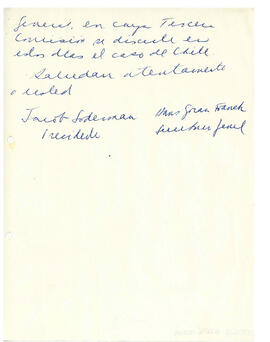 General, en cuya Tercera
Comisión se discute en
estos días el caso de Chile
Saludan atentamente
a usted
Jacob Söderman Hans Göran Franck
Presidente Secretario General